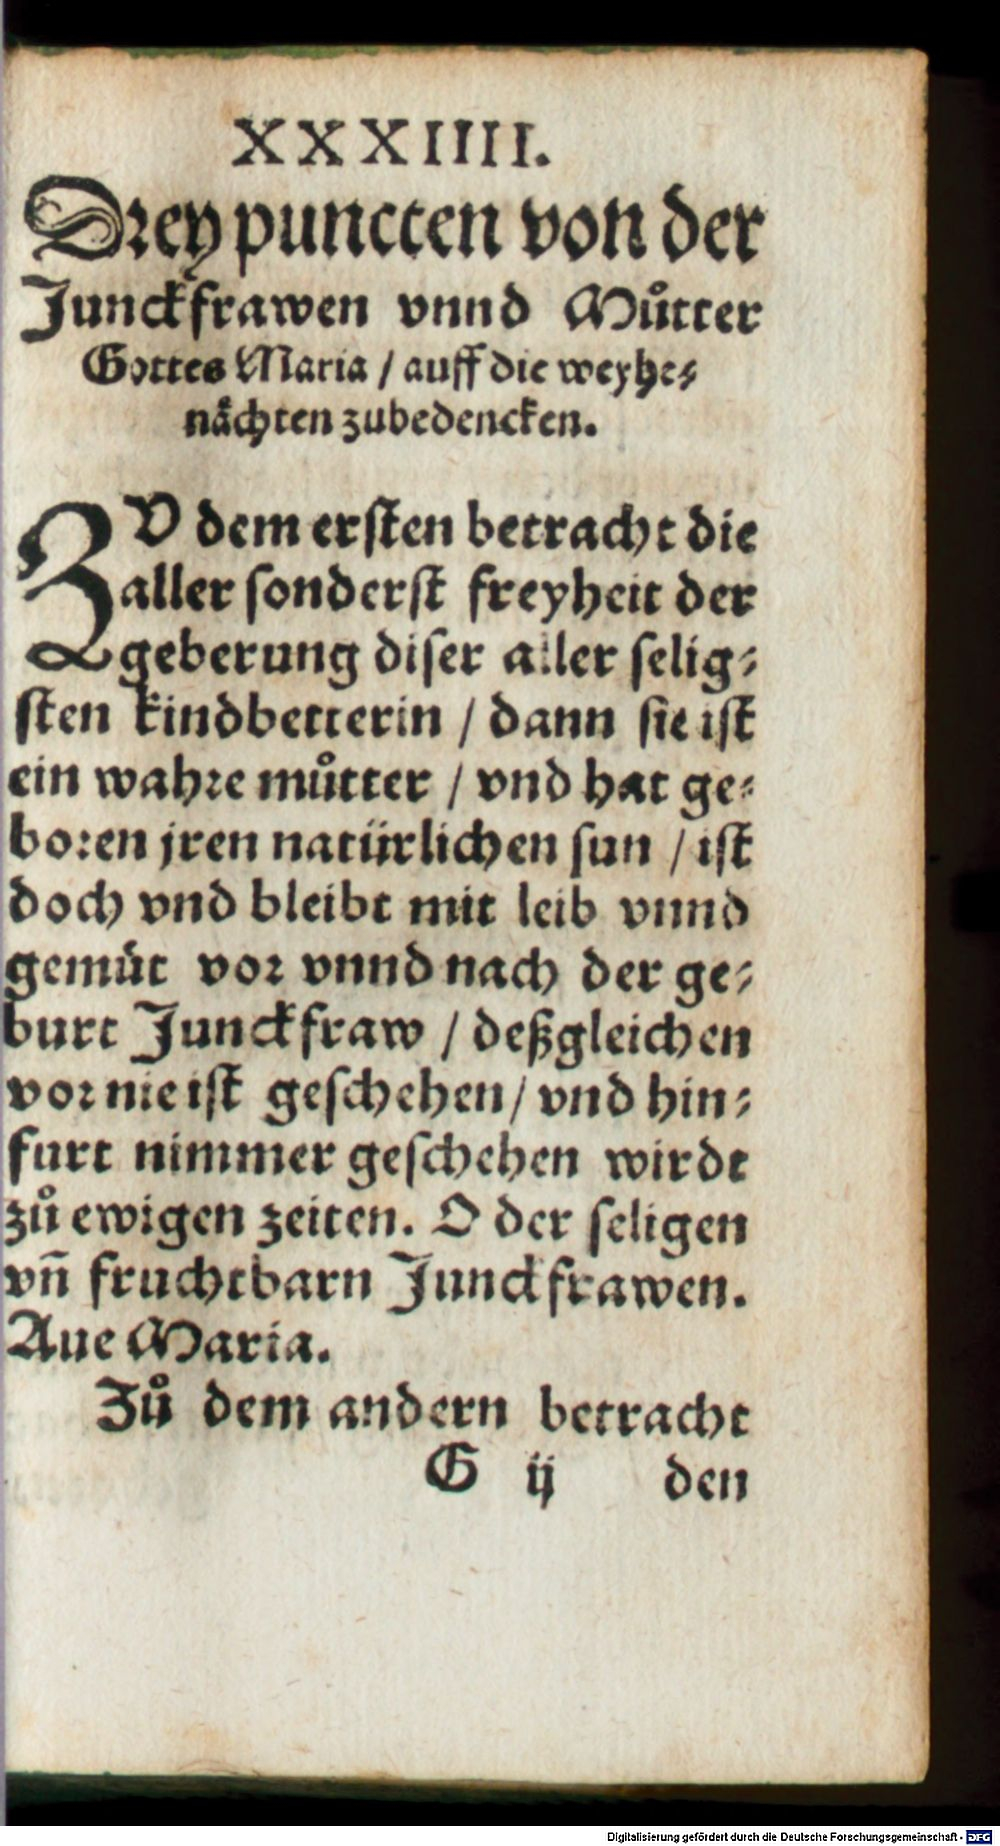 XXXIIII.
Drey puncten von der
Junckfrawen vnnd Můtter
Gottes Maria / auff die weyhe⸗
nächten zubedencken.
ZV dem ersten betracht die
aller sonderst freyheit der
geberung diser aller selig⸗
sten kindbetterin / dann sie ist
ein wahre můtter / vnd hat ge⸗
boren jren natürlichen sun / ist
doch vnd bleibt mit leib vnnd
gemüt vor vnnd nach der ge⸗
burt Junckfraw / deßgleichen
vor nie ist geschehen / vnd hin⸗
furt nimmer geschehen wirdt
zů ewigen zeiten. O der seligen
vñ fruchtbarn Junckfrawen.
Aue Maria.
Zů dem andern betracht
G ij den
Digitalisierung gefördert durch die Deutsche Forschungsgemeinschaft - DFG